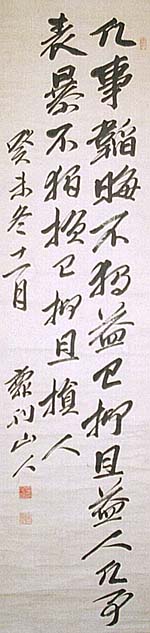 凡事韜晦不獨益己抑且益人凡事
表暴不獨損己抑且損人
癸未冬十一月
山人